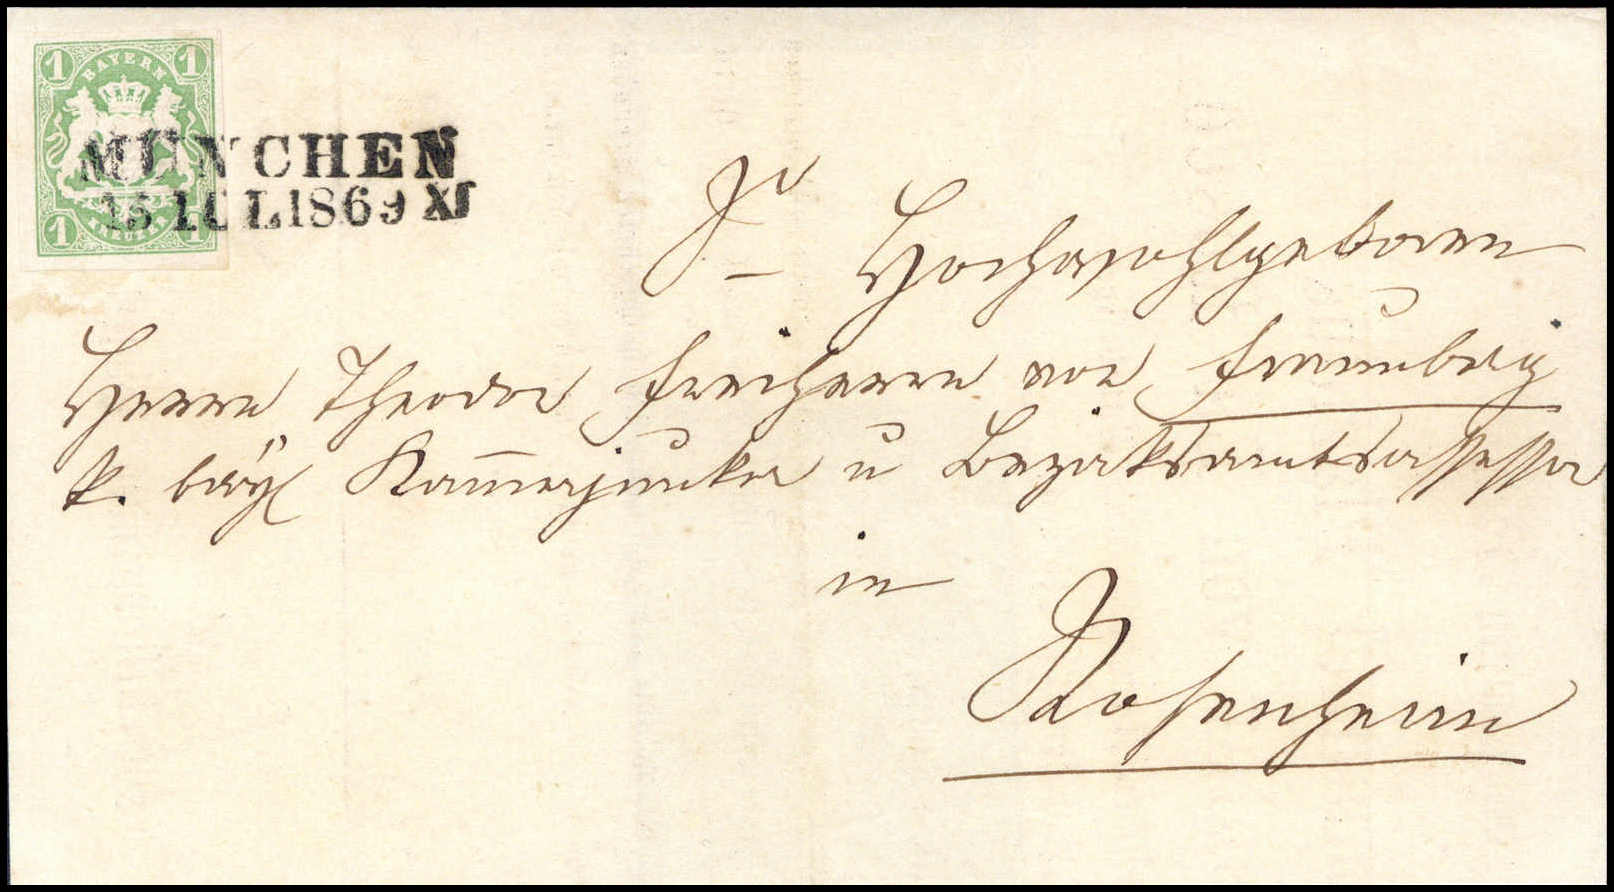 1 BAYERN 1
MÜNCHEN
15 IUL 1869 XI
1 KREUZER 1
Sr Hochwohlgeboren
Herrn Theodor Freiherrn von Fraunberg
k. bayr Kam̄erjunker u Bezirksamtsassessor
in
Rosenheim